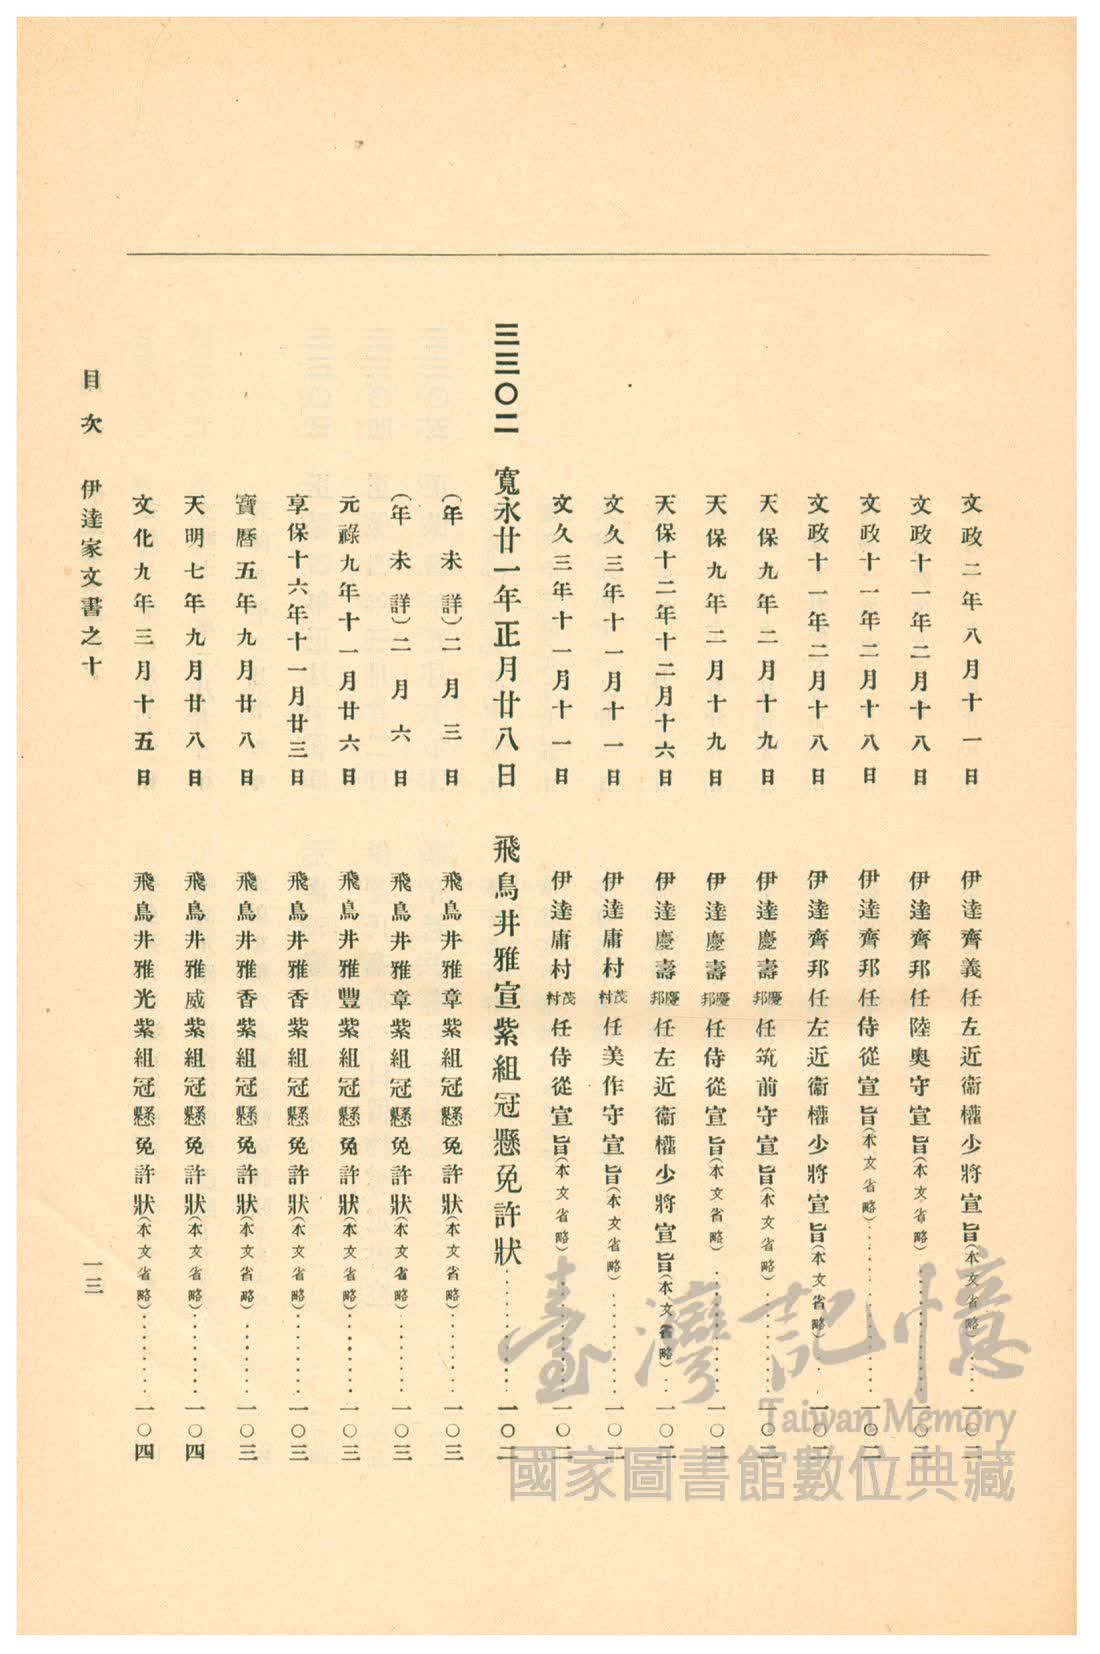 文政二年八月十一日 伊達齊義任左近衞權少將宣旨(本文省略)………一〇二
文政十一年二月十八日 伊達齊邦任陸奧守宣旨(本文省略)………一〇二
文政十一年二月十八日 伊達齊邦任侍從宣旨(本文省略)………一〇二
文政十一年二月十八日 伊達齊邦任左近衞權少將宣旨(本文省略)………一〇二
天保九年二月十九日 伊達慶壽慶邦任筑前守宣旨(本文省略)………一〇二
天保九年二月十九日 伊達慶壽慶邦任侍從宣旨(本文省略)………一〇二
天保十二年十二月十六日 伊達慶壽慶邦任左近衞權少將宣旨(本文省略)………一〇二
文久三年十一月十一日 伊達庸村茂村任美作守宣旨(本文省略)………一〇二
文久三年十一月十一日 伊達庸村茂村任侍從宣旨(本文省略)………一〇二
三三〇二 寬永廿一年正月廿八日 飛鳥井雅宣紫組冠懸免許狀………一〇二
(年未詳)二月三日 飛鳥井雅章紫組冠懸免許狀(本文省略)………一〇三
(年未詳)二月六日 飛鳥井雅章紫組冠懸免許狀(本文省略)………一〇三
元祿九年十一月廿六日 飛鳥井雅豐紫組冠懸免許狀(本文省略)………一〇三
享保十六年十一月廿三日 飛鳥井雅香紫組冠懸免許狀(本文省略)………一〇三
寶曆五年九月廿八日 飛鳥井雅香紫組冠懸免許狀(本文省略)………一〇三
天明七年九月廿八日 飛鳥井雅威紫組冠懸免許狀(本文省略)………一〇四
文化九年三月十五日 飛鳥井雅光紫組冠懸免許狀(本文省略)………一〇四
目次 伊達家文書之十 一三
臺灣記憶
Taiwan Memory
國家圖書館數位典藏